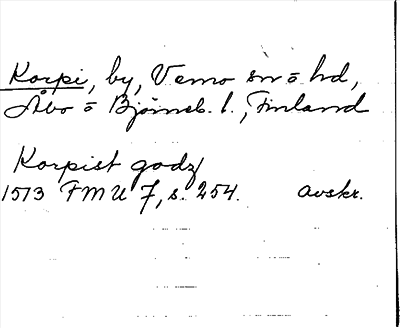 Korpi, by, Vemo sn o hd,
Åbo o Björneb. l., Finland
Korpist godz
1513 FMU 7, s. 254. avskr.